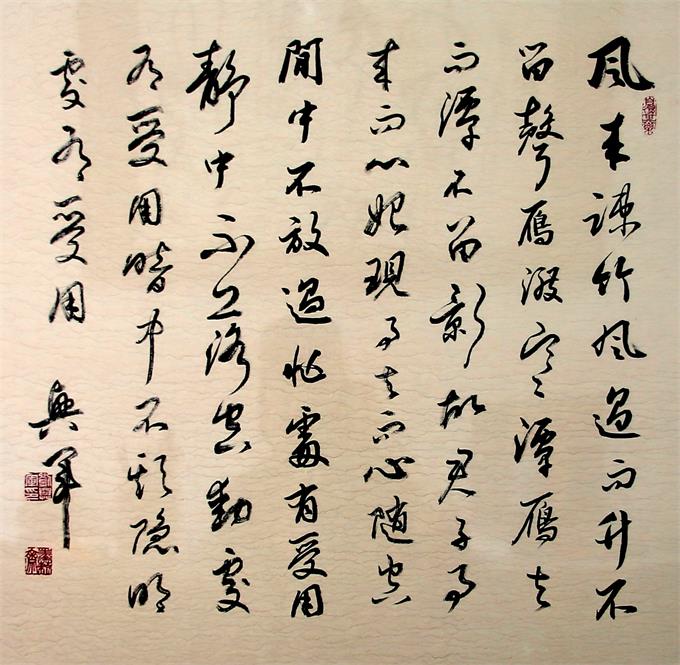 風来疎竹風過而竹不
留聲雁渡寒潭雁去
而潭不留影故君子事
来而心始現事去而心随空
閒中不放過忙處有受用
静中不落空動處
有受用暗中不欺隐明
處有受用
興军